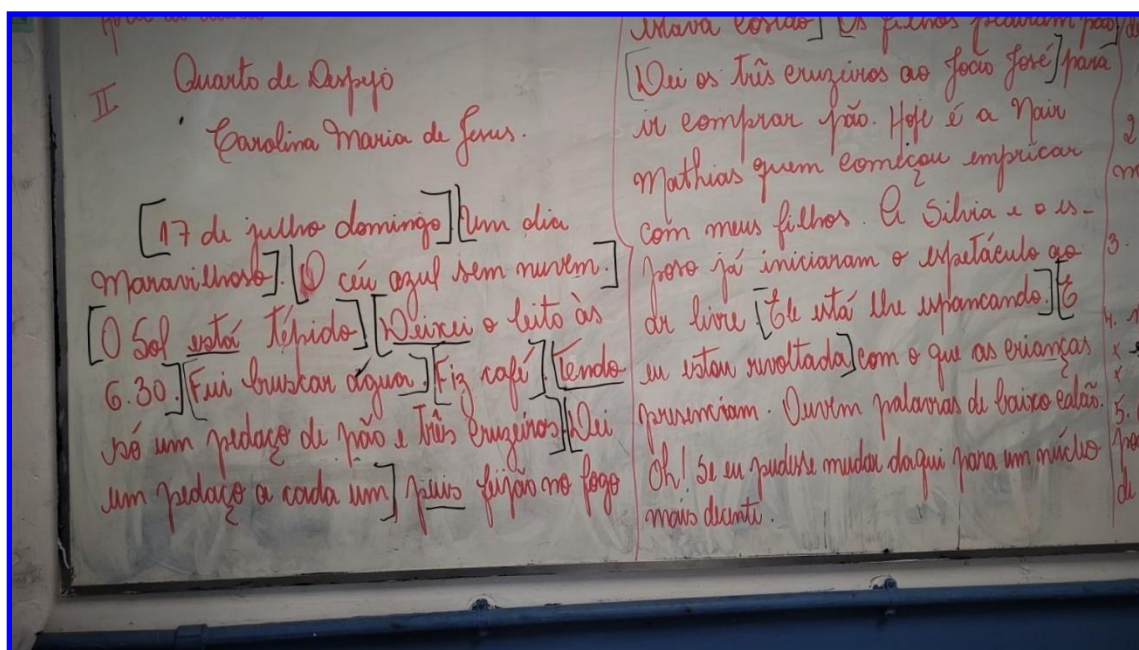 II
Quarto de Despejo
Carolina Maria de Jesus.
[17 de julho domingo] [Um dia
Maravilhoso]. [O céu azul sem nuvem.]
[O Sol está tépido] [Deixei o leito às
6.30.] [Fui bruscar água.] [Fiz café]. [Tendo
só um pedaço de pão e três cruzeiros] [Dei
um pedaço a cada um] puis feijão no fogo
estava cosido] Os filhos pediram pão]
[Dei os três cruzeiros ao João José] para
ir comprar pão. Hoje é a Nair
Mathias quem começou empricar
com meus filhos. A Silvia e o es-
poso já iniciaram o espetáculo ao
ar livre. [Ele está lhe espancando.] [E
eu estou revoltada] com o que as crianças
presenciam. Ouvem palavras de baixo calão.
Oh! Se eu pudesse mudar daqui para um núcleo
mais decente.
2
3.
4.
x
x
5.
de